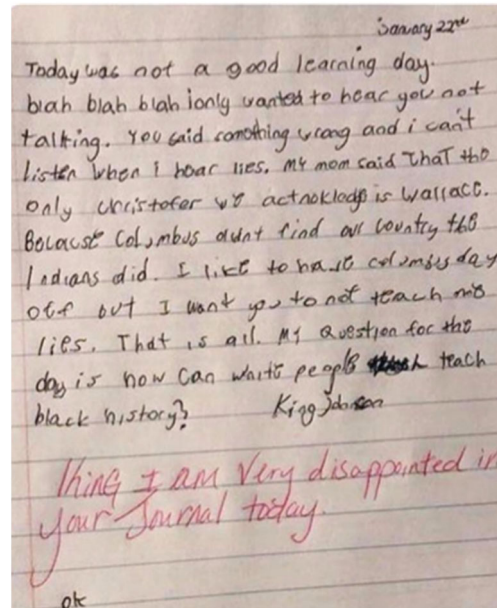 January 22nd
Today was not a good learning day.
blah blah blah i only wanted to hear you not
talking. You said something wrong and i can't
listen when i hear lies. My mom said that the
only christofer we acknoklodge is wallace.
Because Columbus didnt find our country the
Indians did. I like to have columbus day
off but I want you to not teach me
lies. That is all. My question for the
day is how can white people teach
black history? King Johnson
King I am very disappointed in
your Journal today.
ok